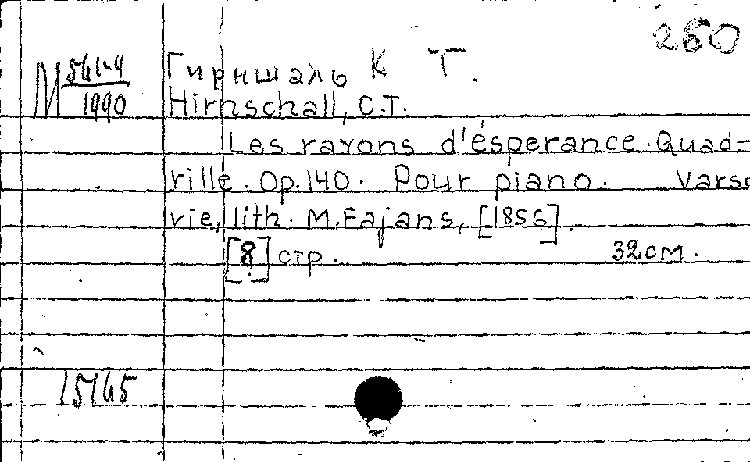 250
М 561-4 Гирншаль К Т.
1990 Hirnschall, C.T.
Les rayons d'ésperance. Quad-
rille. Op.140. Pour piano. Varso
vie, lith. M. Fajans, [1856].
[8] стр. 32см.
15165